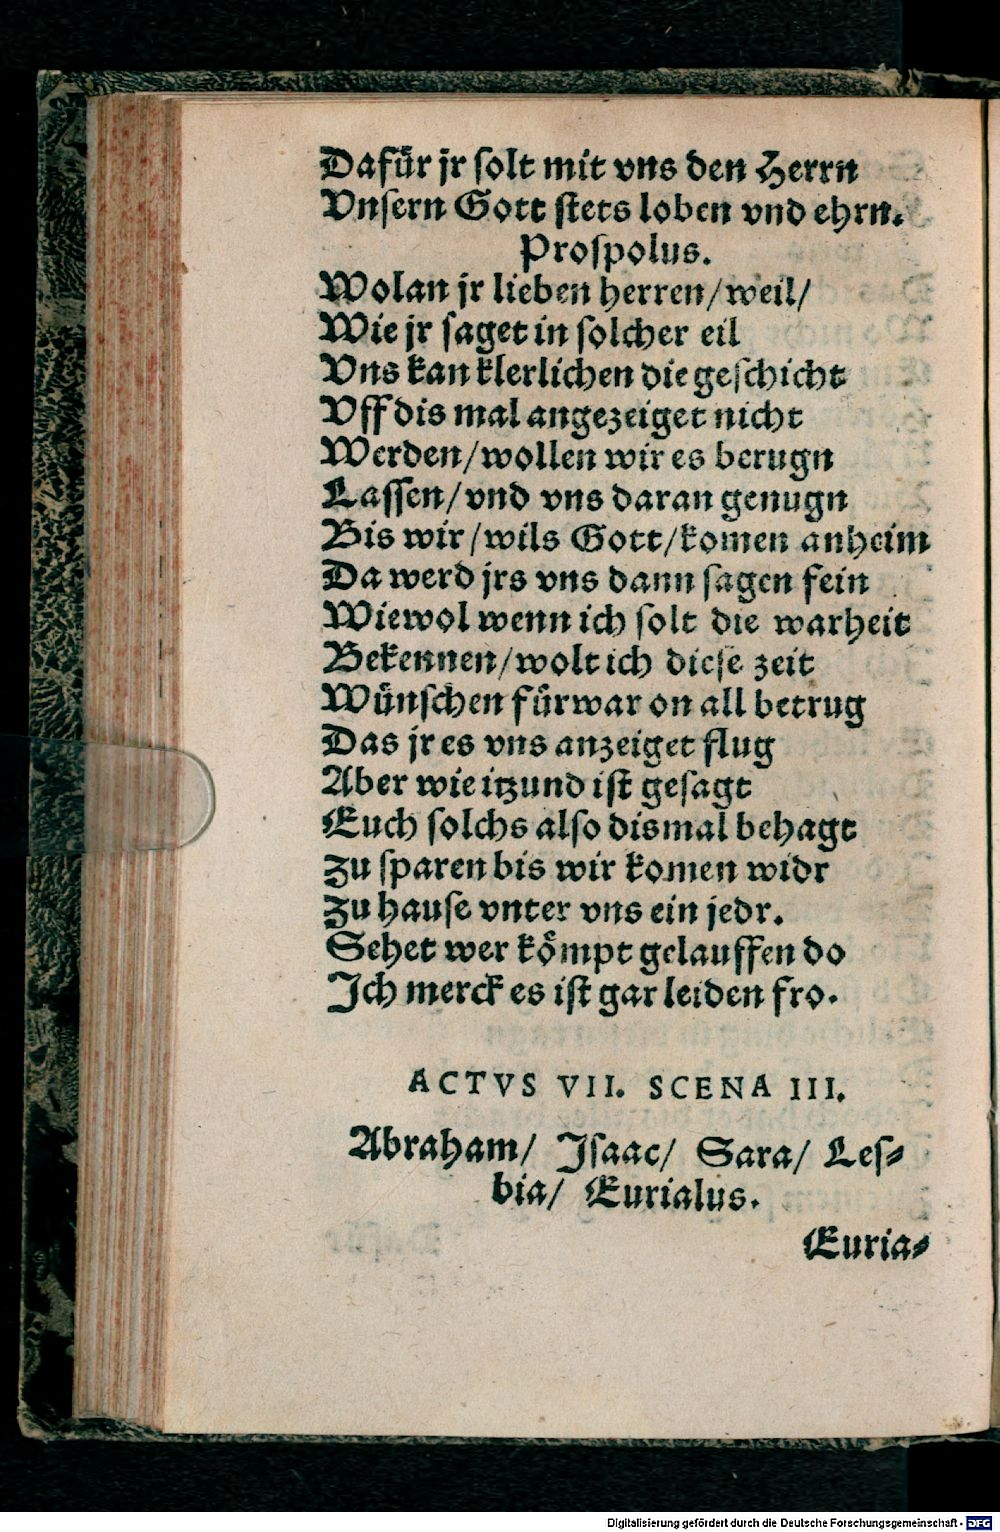 Dafür jr solt mit vns den Herrn
Vnsern Gott stets loben vnd ehrn.
Prospolus.
Wolan jr lieben herren/weil/
Wie jr saget in solcher eil
Vns kan klerlichen die geschicht
Vff dis mal angezeiget nicht
Werden/wollen wir es berugn
Lassen/vnd vns daran genugn
Bis wir/wils Gott/komen anheim
Da werd jrs vns dann sagen fein
Wiewol wenn ich solt die warheit
Bekennen/wolt ich diese zeit
Wünschen fürwar on all betrug
Das jr es vns anzeiget flug
Aber wie itzund ist gesagt
Euch solchs also dismal behagt
Zu sparen bis wir komen widr
Zu hause vnter vns ein jedr.
Sehet wer kömpt gelauffen do
Ich merck es ist gar leiden fro.
ACTVS VII. SCENA III.
Abraham/ Isaac/ Sara/ Les-
bia/ Eurialus.
Euria-
Digitalisierung gefördert durch die Deutsche Forschungsgemeinschaft - DFG